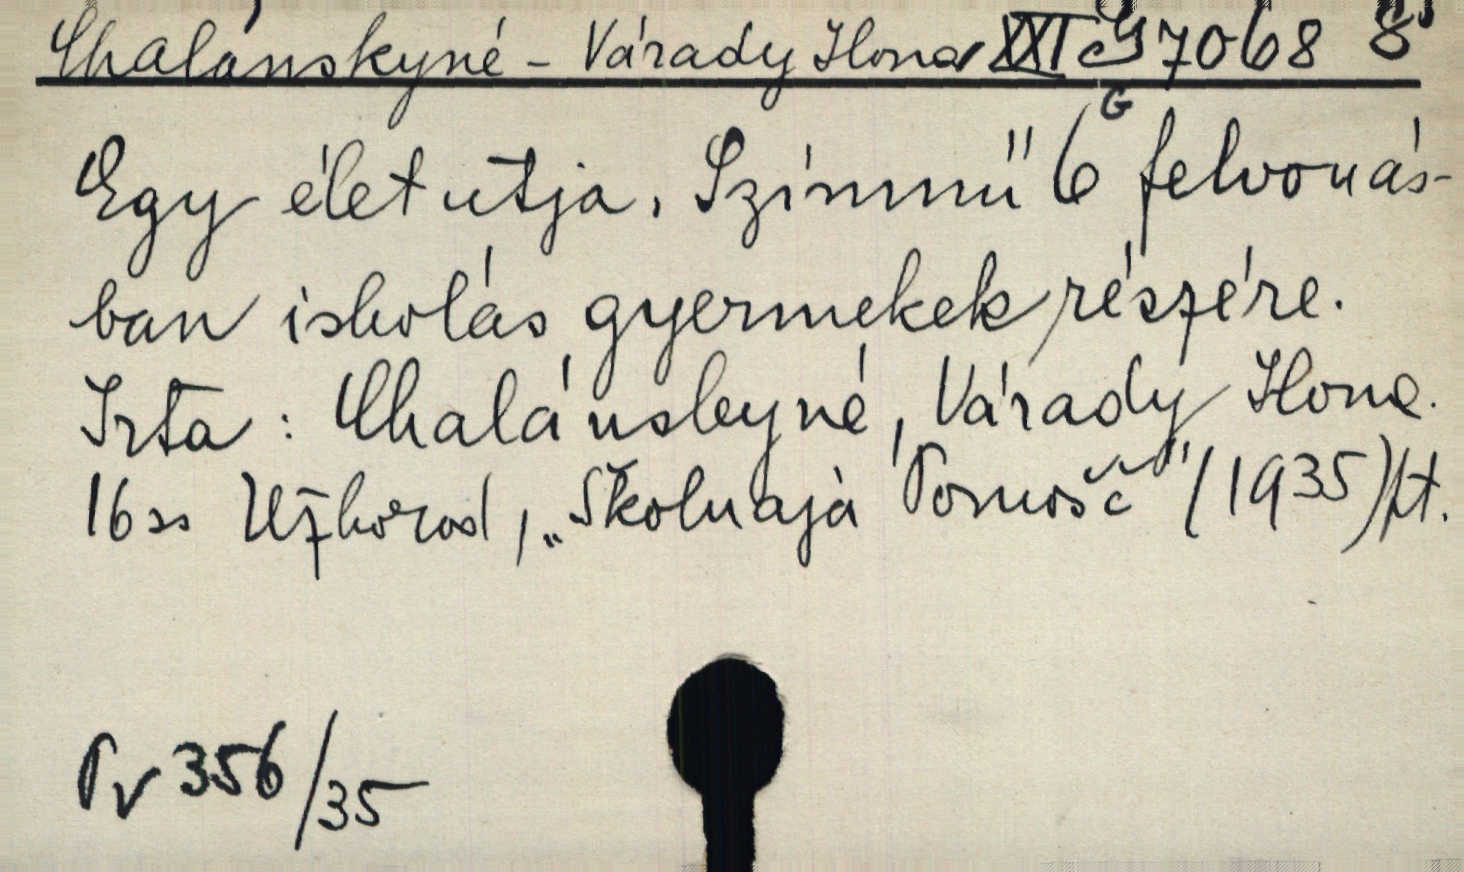 Chalánskyné - Várady Ilona XXI G 7068 8°
G
Egy élet utja. Szinmű 6 felvonás-
ban iskolás gyermekek részére.
Irta: Chalánskyné, Várady Ilona.
16ss Užhorod, „Školnaja Pomošč" (1935) Pt.
Pv 356/35